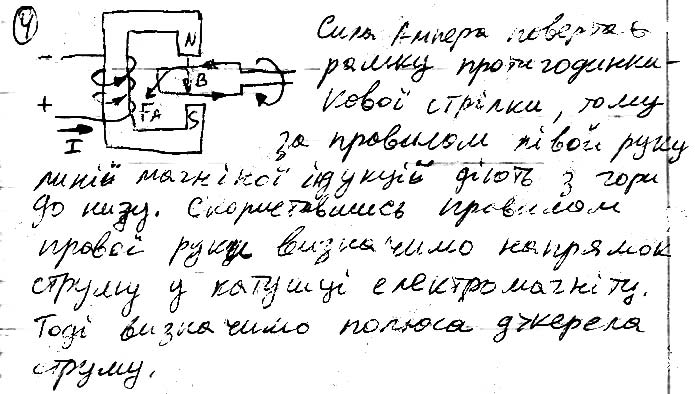 4
N
-
B
+
FA
S
I
Сила Ампера повертає
рамку протигодинни-
кової стрілки, тому
за правилом лівой руки
линій магнікої ідукцій діють з гори
до низу. Скориставшись правилом
правой руки визначимо напрямок
струму у катушці електромагніту.
Тоді визначимо полюса джерела
струму.